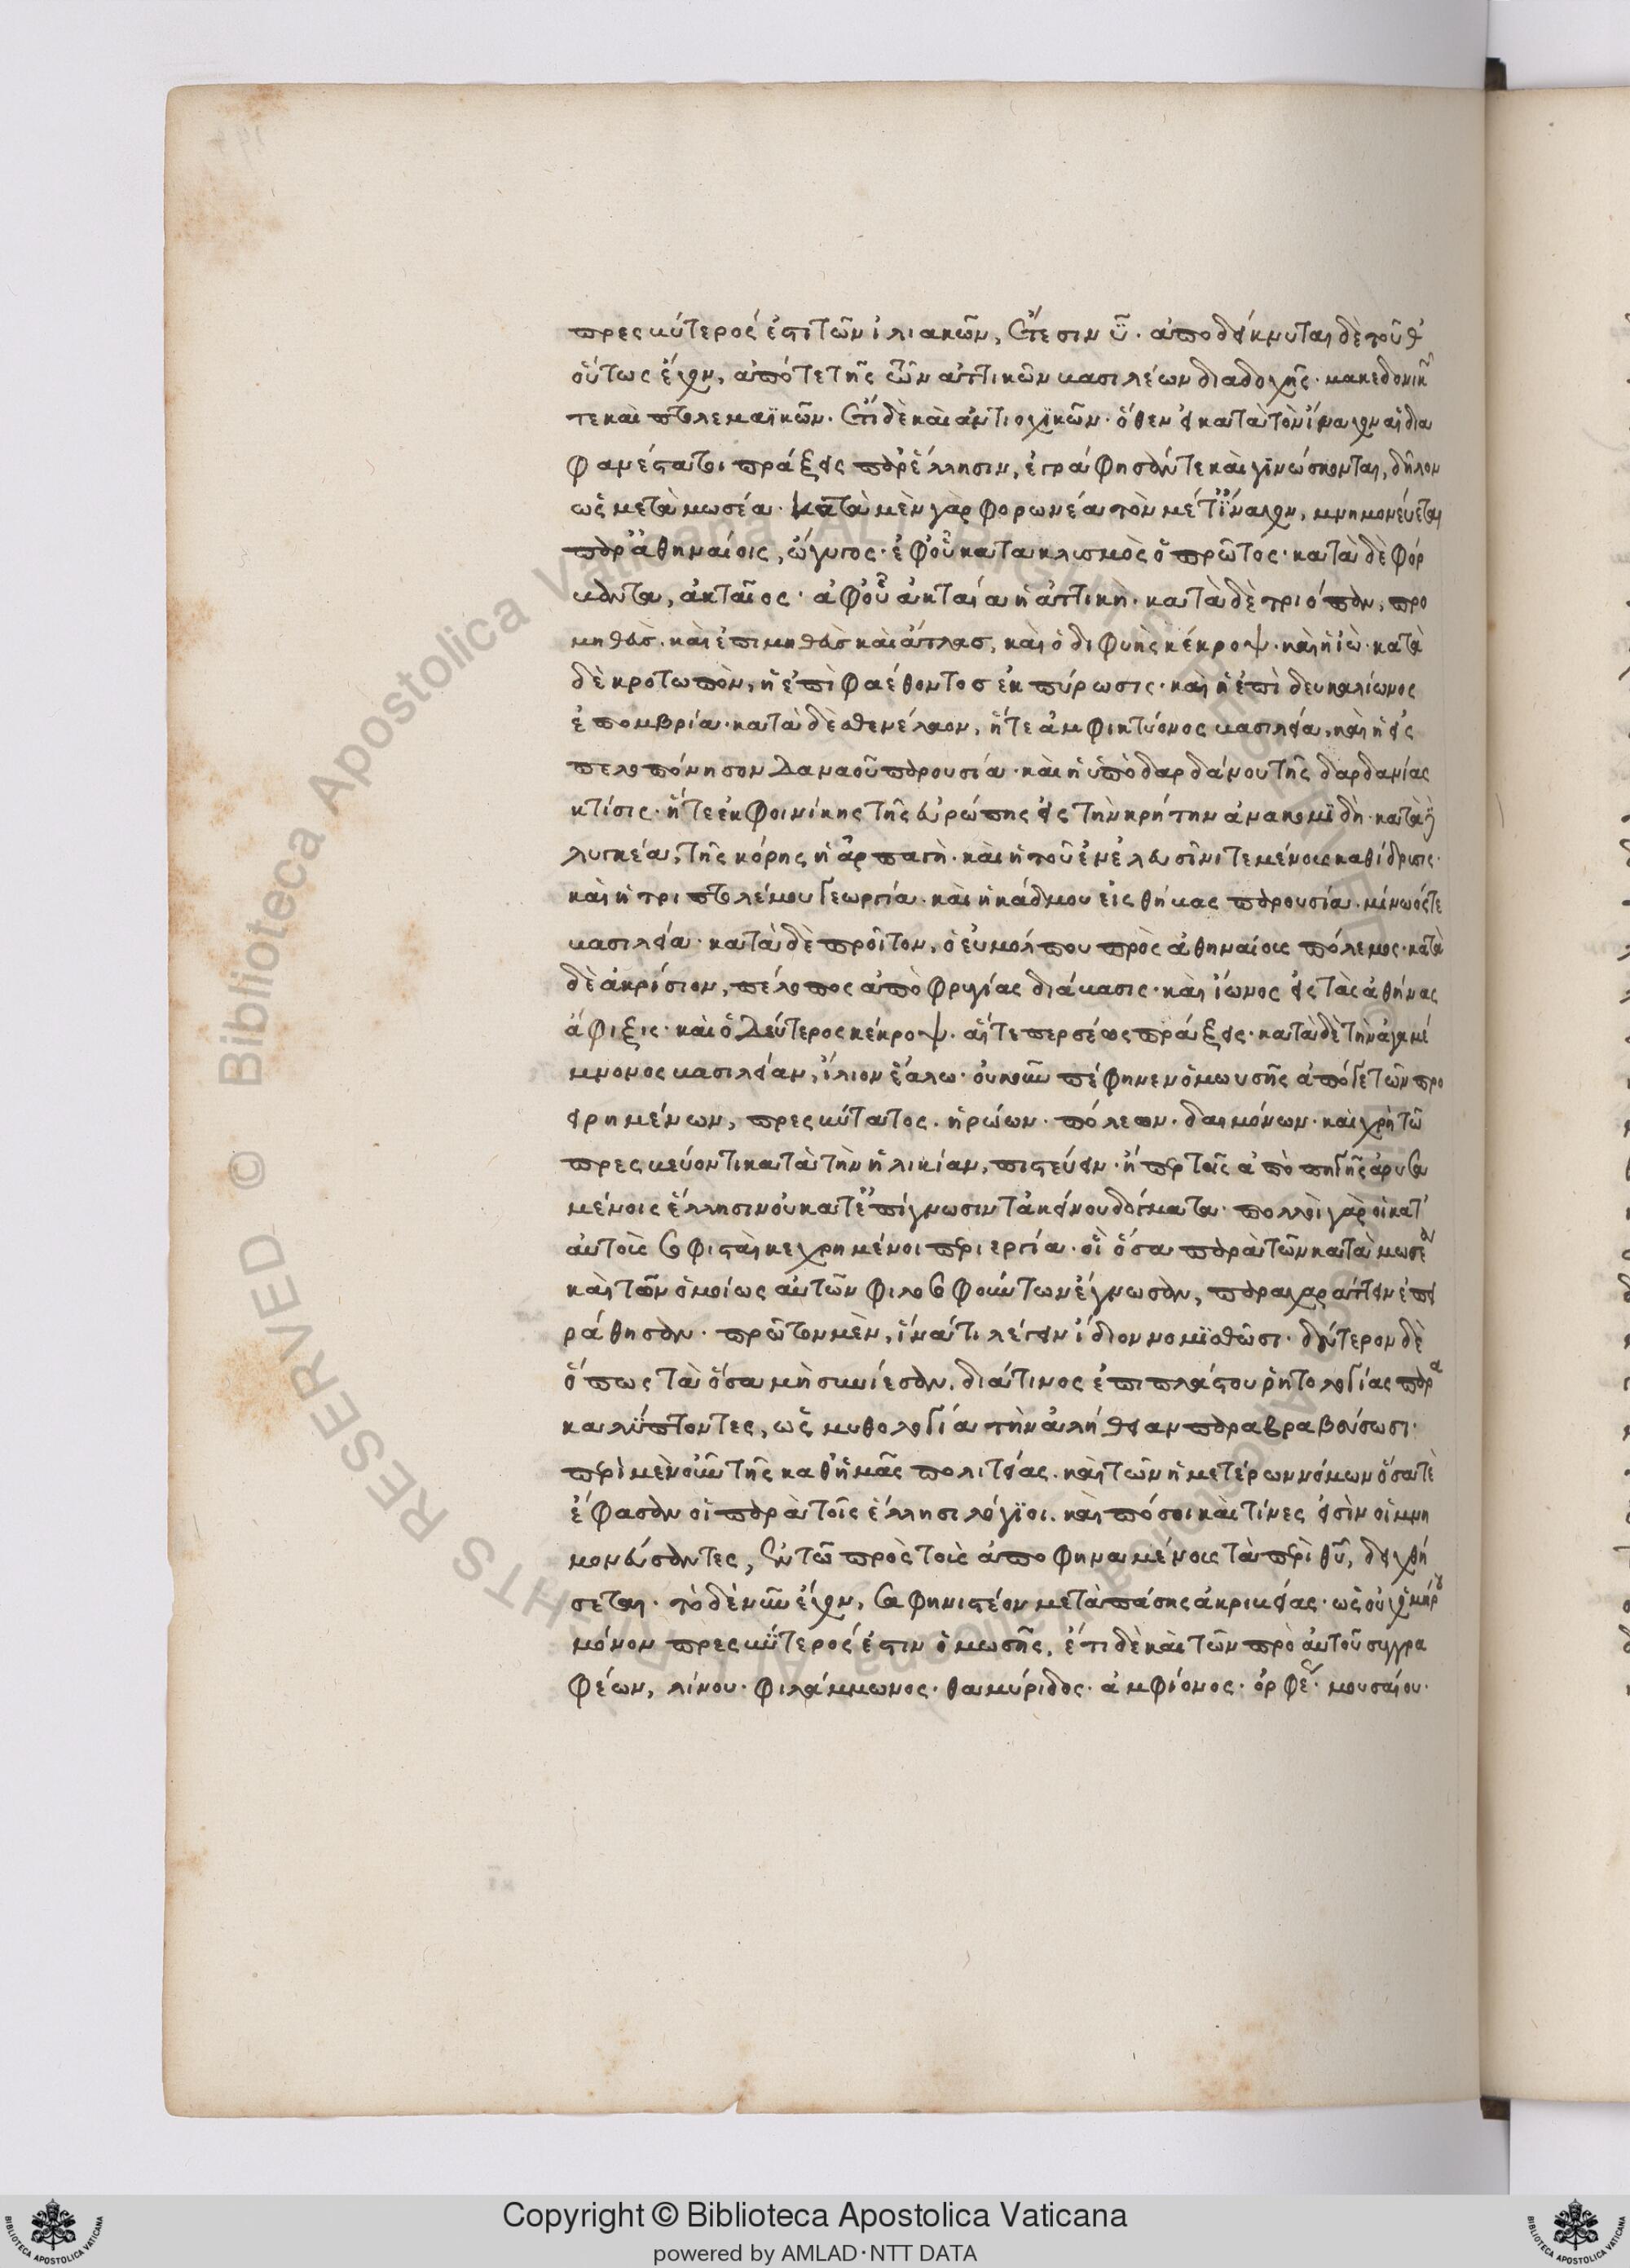 πρεσβύτερός ἐστι τῶν ἰλιακῶν, ἔτεσιν ῡ. ἀποδείκνυται δὲ τοῦθ'
οὕτως ἔχειν, ἀπό τε τῆς τῶν ἀττικῶν βασιλέων διαδοχῆς. μακεδονικῶν
τε καὶ πτολεμαϊκῶν. ἔτι δὲ καὶ ἀντιοχικῶν. ὅθεν εἰ κατὰ τὸν ἴναχον αἱ δια
φανέσταται πράξεις παρ' ἕλλησιν, ἐγράφησάν τε καὶ γινώσκονται, δῆλον
ὡς μετὰ μωσέα. κατὰ μὲν γὰρ φορωνέα τὸν μέτ' ἴναχον, μνημονεύεται
παρ' ἀθηναίοις, ὤγυγος. ἐφ' οὗ κατακλυσμὸς ὁ πρῶτος. κατὰ δὲ φόρ
βαντα, ἀκταῖος. ἀφ' οὗ ἀκταία ἡ ἀττική. κατὰ δὲ τριόπαν, προ
μηθεὺς. καὶ ἐπιμηθεὺς καὶ ἄτλας, καὶ ὁ διφυὴς κέκροψ. καὶ ἡ ἰώ. κατὰ
δὲ κρότωπον, ἡ ἐπὶ φαέθοντος ἐκπύρωσις. καὶ ἡ ἐπὶ δευκαλίωνος
ἐπομβρία. κατὰ δὲ σθενέλαον, ἥ τε ἀμφικτύονος βασιλεία, καὶ ἡ εἰς
πελοπόνησον δαναοῦ παρουσία. καὶ ἡ ὑπὸ δαρδάνου τῆς δαρδανίας
κτίσις. ἥ τε ἐκ φοινίκης τῆς εὐρώπης εἰς τὴν κρήτην ἀνακομιδή. κατὰ δὲ
λυγκέα, τῆς κόρης ἡ ἁρπαγή. καὶ ἡ τοῦ ἐν ἐλευσῖνι τεμένους καθίδρυσις.
καὶ ἡ τριπτολέμου γεωργία. καὶ ἡ κάδμου εἰς θήβας παρουσία. μίνωός τε
βασιλεία. κατὰ δὲ προῖτον, ὁ εὐμόλπου πρὸς ἀθηναίους πόλεμος. κατὰ
δὲ ἀκρίσιον, πέλοπος ἀπὸ φρυγίας διάβασις. καὶ ἴωνος εἰς τὰς ἀθήνας
ἄφιξις. καὶ ὁ δεύτερος κέκροψ. αἵ τε περσέως πράξεις. κατὰ δὲ τὴν ἀγαμέ
μνονος βασιλείαν, ἴλιον ἑάλω. οὐκοῦν πέφηνεν ὁ μωυσῆς ἀπό γε τῶν προ
ειρημένων, πρεσβύτατος. ἡρώων. πόλεων. δαιμόνων. καὶ χρὴ τῶ
πρεσβεύοντι κατὰ τὴν ἡλικίαν, πιστεύειν. ἤπερ τοῖς ἀπὸ πηγῆς ἀρυσα
μένοις ἕλλησιν οὐ κατ' ἐπίγνωσιν τἀκείνου δόγματα. πολλοὶ γὰρ οἱ κατ'
αὐτοὺς σοφισταὶ κεχρημένοι περιεργία. οἳ ὅσα παρὰ τῶν κατὰ μωσέα
καὶ τῶν ὁμοίως αὐτῶν φιλοσοφούντων ἔγνωσαν, παραχαράττειν ἐπει
ράθησαν. πρῶτον μὲν, ἵνα τι λέγειν ἴδιον νομισθῶσι. δεύτερον δὲ
ὅπως τὰ ὅσα μὴ συνίεσαν, διά τινος ἐπιπλάστου ῥητολογίας παρα
καλύπτοντες, ὡς μυθολογία τὴν ἀλήθειαν παραβραβεύσωσι.
περὶ μὲν οὖν τῆς καθ' ἡμᾶς πολιτείας. καὶ τῶν ἡμετέρων νόμων ὅσα τὲ
ἔφασαν οἱ παρὰ τοῖς ἕλλησι λόγιοι. καὶ πόσοι καὶ τίνες εἰσὶν οἱ μνη
μονεύσαντες, ἐν τῶ πρὸς τοὺς ἀποφηναμένους τὰ περὶ θῦ, δειχθή
σεται. τὸ δὲ νῦν ἔχον, σαφηνιστέον μετὰ πάσης ἀκριβείας. ὡς οὐχ' ὁμήρου
μόνον πρεσβύτερός ἐστιν ὁ μωσῆς, ἔτι δὲ καὶ τῶν πρὸ αὐτοῦ συγγρα
φέων, λίνου. φιλάμμωνος. θαμύριδος. ἀμφίονος. ὀρφέως. μουσαίου.
Copyright © Biblioteca Apostolica Vaticana
powered by AMLAD·NTT DATA